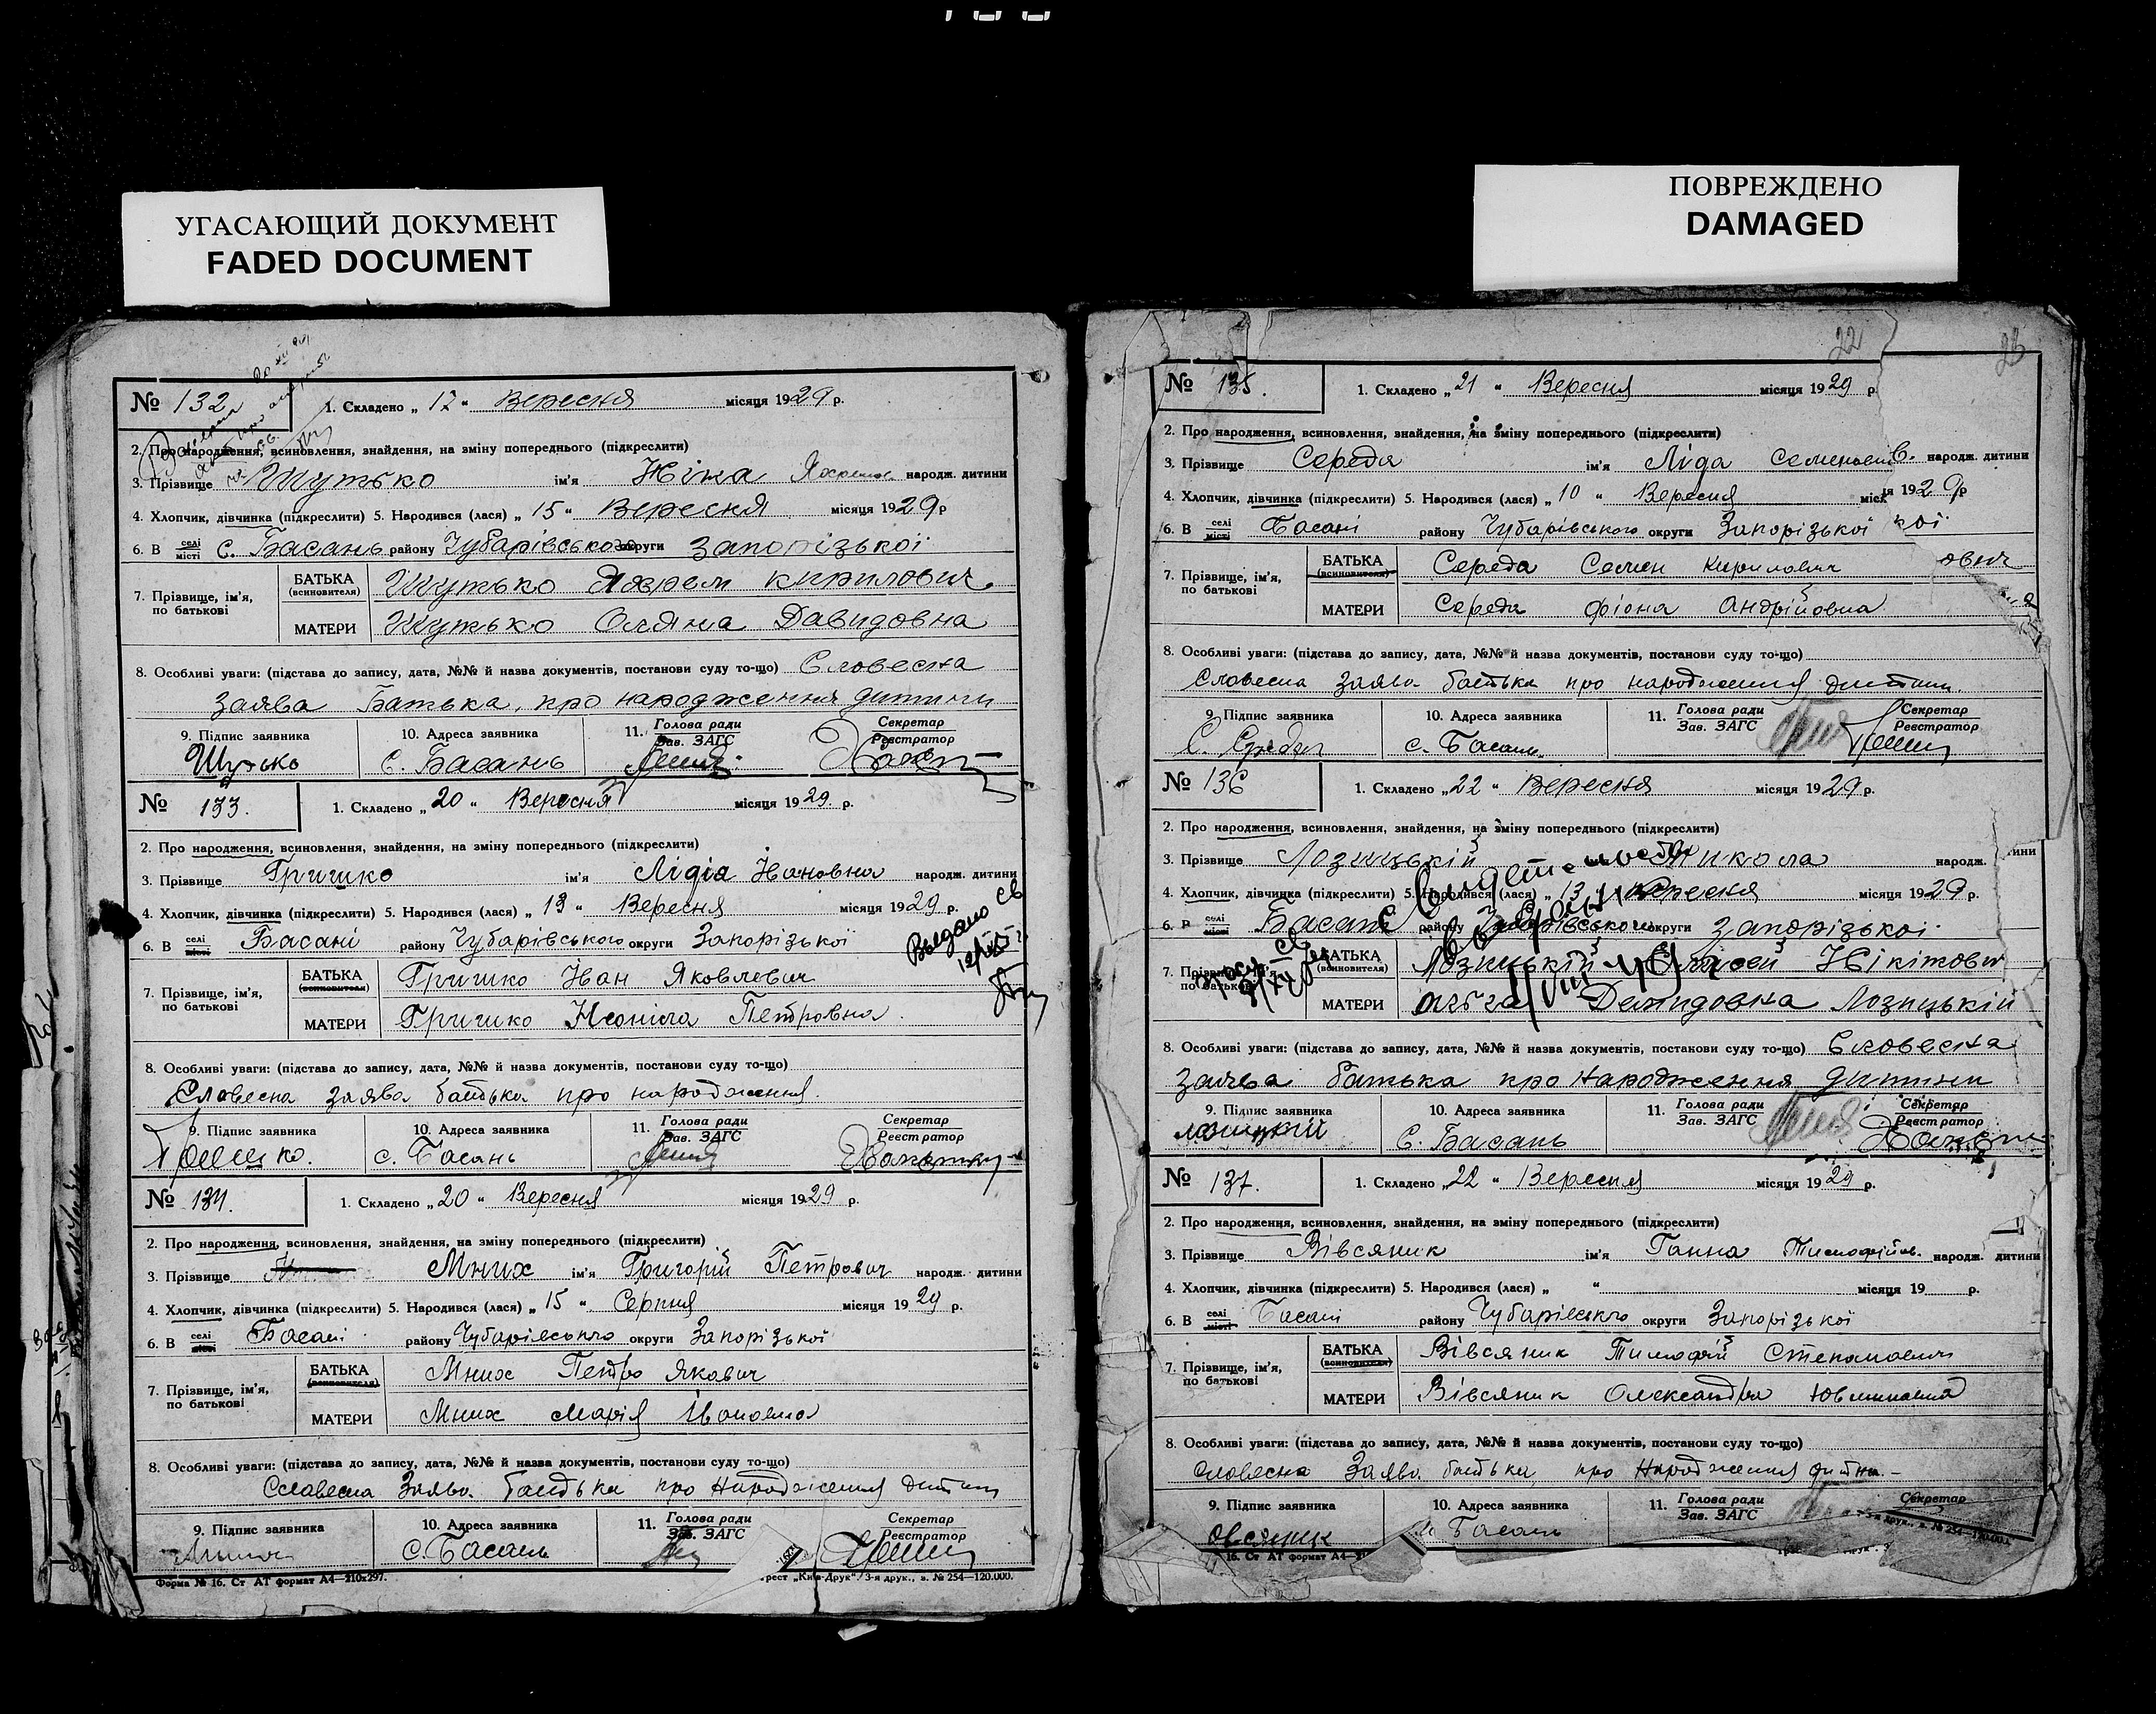 УГАСАЮЩИЙ ДОКУМЕНТ
FADED DOCUMENT
ПОВРЕЖДЕНО
DAMAGED
№ 132
1. Складено „ 17 “ Вересня місяця 1929 р.
2. Про народження, всиновлення, знайдення, на зміну попереднього (підкреслити)
3. Прізвище Шутько ім'я Ніна народж. дитини
4. Хлопчик, дівчинка (підкреслити) 5. Народився (лася) „ 15 “ Вересня місяця 1929 р
6. В селі місті с. Басань району Чубарівського округи Запорізької
7. Прізвище, ім'я, по батькові
БАТЬКА (всиновителя) Шутько Кирилович
МАТЕРИ Шутько Оляна Давидовна
8. Особливі уваги: (підстава до запису, дата, №№ й назва документів, постанови суду то-що) Словесна
заява Батька, про народження дитини
9. Підпис заявника 10. Адреса заявника 11. Голова ради Зав. ЗАГС Секретар Реєстратор
Шутько с. Басань
№ 133.
1. Складено „ 20 “ Вересня місяця 1929. р.
2. Про народження, всиновлення, знайдення, на зміну попереднього (підкреслити)
3. Прізвище Гришко ім'я Лідіа Івановна народж. дитини
4. Хлопчик, дівчинка (підкреслити) 5. Народився (лася) „ 13 “ Вересня місяця 1929 р.
6. В селі місті Басані району Чубарівського округи Запорізької
Выдано св
7. Прізвище, ім'я, по батькові
БАТЬКА (всиновителя) Гришко Іван Яковлевич
МАТЕРИ Гришко Неоніла Петровна.
8. Особливі уваги: (підстава до запису, дата, №№ й назва документів, постанови суду то-що)
Словесна заява батька про народження.
9. Підпис заявника 10. Адреса заявника 11. Голова ради Зав. ЗАГС Секретар Реєстратор
Гришко. с. Басань
№ 134.
1. Складено „ 20 “ Вересня місяця 1929 р.
2. Про народження, всиновлення, знайдення, на зміну попереднього (підкреслити)
3. Прізвище Мних ім'я Григорій Петрович народж. дитини
4. Хлопчик, дівчинка (підкреслити) 5. Народився (лася) „ 15 “ Серпня місяця 1929 р.
6. В селі місті Басані району Чубарівського округи Запорізької
7. Прізвище, ім'я, по батькові
БАТЬКА (всиновителя) Мних Петро Якович
МАТЕРИ Мних Марія Івановна
8. Особливі уваги: (підстава до запису, дата, №№ й назва документів, постанови суду то-що)
Словесна Заява батька про Народження дитини
9. Підпис заявника 10. Адреса заявника 11. Голова ради Зав. ЗАГС Секретар Реєстратор
с. Басань
Форма № 16. Ст АТ формат А4—210х297. рест „Київ-Друк“ 3-я друк., з. № 254—120.000.
22 23
№ 135.
1. Складено „ 21 “ Вересня місяця 1929 р
2. Про народження, всиновлення, знайдення, на зміну попереднього (підкреслити)
3. Прізвище Середа ім'я Ліда народж. дитини
4. Хлопчик, дівчинка (підкреслити) 5. Народився (лася) „ 10 “ Вересня 1929 р
6. В селі місті Басані району Чубарівського округи Запорізької
7. Прізвище, ім'я, по батькові
БАТЬКА (всиновителя) Середа Семен Кирилович
МАТЕРИ Середа Фіона Андрійовна
8. Особливі уваги: (підстава до запису, дата, №№ й назва документів, постанови суду то-що)
Словесна заява батька про народження дитини.
9. Підпис заявника 10. Адреса заявника 11. Голова ради Зав. ЗАГС Секретар Реєстратор
С. Середа с. Басань
№ 136
1. Складено „ 22 “ Вересня місяця 1929 р.
2. Про народження, всиновлення, знайдення, на зміну попереднього (підкреслити)
3. Прізвище Лозицькій Микола народж.
4. Хлопчик, дівчинка (підкреслити) 5. Народився (лася) „ 13 Вересня місяця 1929 р.
6. В селі місті Басані району Чубарівського округи Запорізької
7. Прізвище, ім'я, по батькові
БАТЬКА (всиновителя) Лозицькій Нікітович
МАТЕРИ Ольга Демидовна Лозицькій
8. Особливі уваги: (підстава до запису, дата, №№ й назва документів, постанови суду то-що) Словесна
заява батька про народження дитини
9. Підпис заявника 10. Адреса заявника 11. Голова ради Зав. ЗАГС Секретар Реєстратор
с. Басань
№ 137.
1. Складено „ 22 “ Вересня місяця 1929 р.
2. Про народження, всиновлення, знайдення, на зміну попереднього (підкреслити)
3. Прізвище Вівсяник ім'я Ганна Тимофійов. народж. дитини
4. Хлопчик, дівчинка (підкреслити) 5. Народився (лася) „ “ місяця 19 р.
6. В селі місті Басані району Чубарівського округи Запорізької
7. Прізвище, ім'я, по батькові
БАТЬКА (всиновителя) Вівсяник Тимофій Степанович
МАТЕРИ Вівсяник Олександра
8. Особливі уваги: (підстава до запису, дата, №№ й назва документів, постанови суду то-що)
словесна Заява батька, про Народження дитини
9. Підпис заявника 10. Адреса заявника 11. Голова ради Зав. ЗАГС Секретар
Овсяник Басань
16. Ст АТ формат А4—21 3-я друк., з. № 254—120.000.